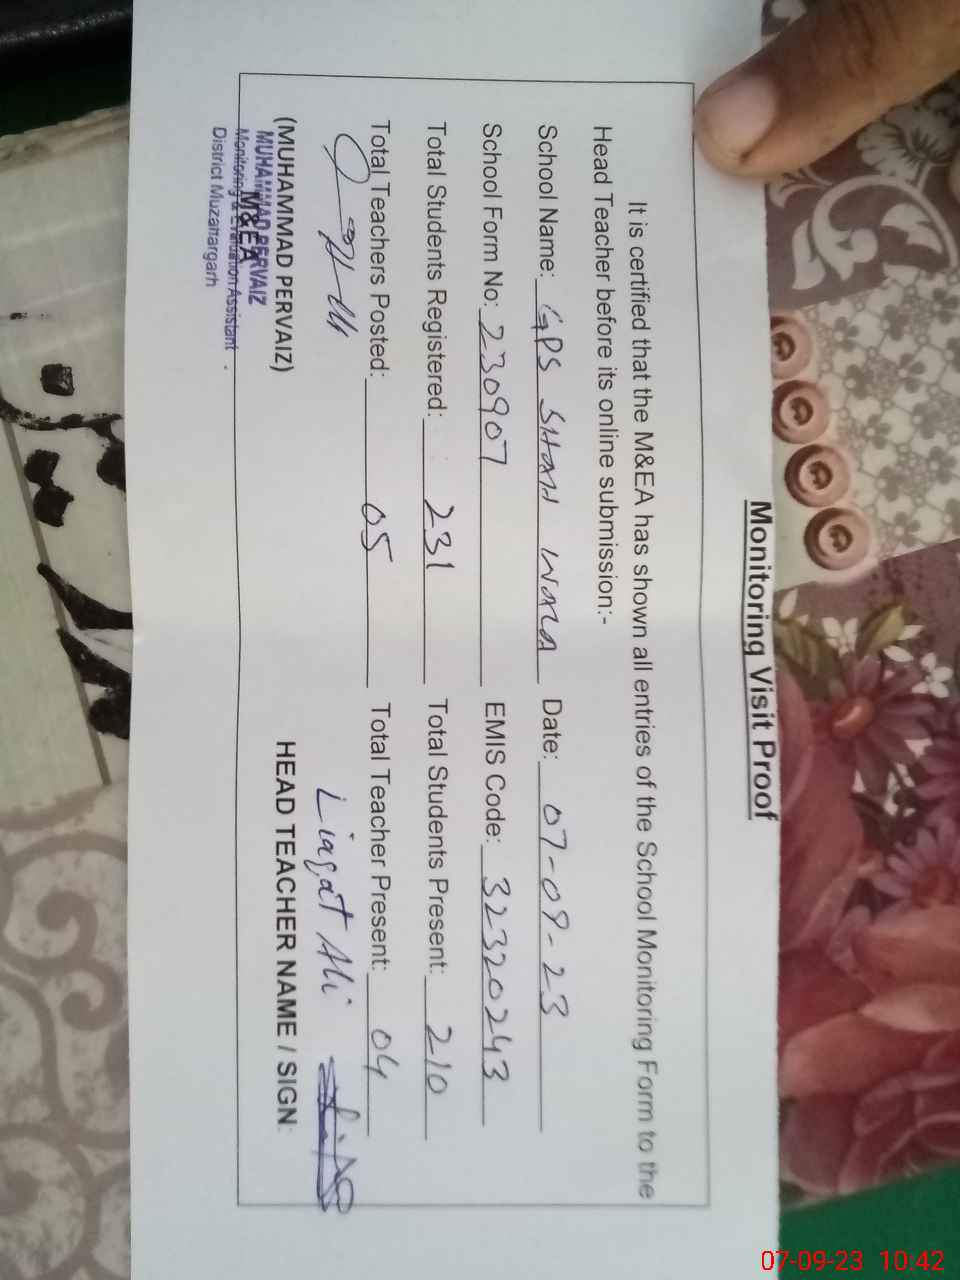 Monitoring Visit Proof
It is certified that the M&EA has shown all entries of the School Monitoring Form to the
Head Teacher before its online submission:-
School Name: GPS SHAH WALA Date: 07-09-23
School Form No: 230907 EMIS Code: 32320243
Total Students Registered: 231 Total Students Present: 210
Total Teachers Posted: 05 Total Teacher Present: 04
Liaqat Ali
(MUHAMMAD PERVAIZ) HEAD TEACHER NAME / SIGN
M&EA
MUHAMMAD PERVAIZ
Monitoring & Evaluation Assistant
District Muzaffargarh
07-09-23 10:42